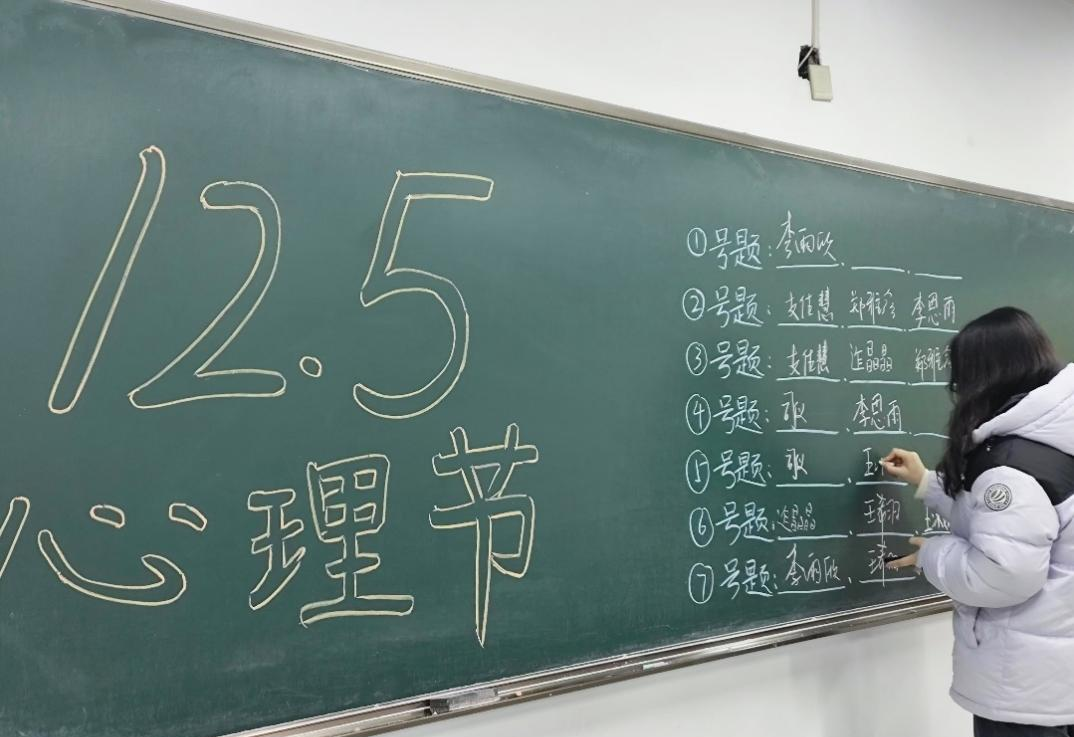 12.5
心理节
①号题:李雨欣、
②号题:支佳慧、郑雅、李思雨
③号题:支佳慧、晶晶、郑雅
④号题:、李思雨、
⑤号题:、王
⑥号题:晶晶、王
⑦号题:李雨欣、